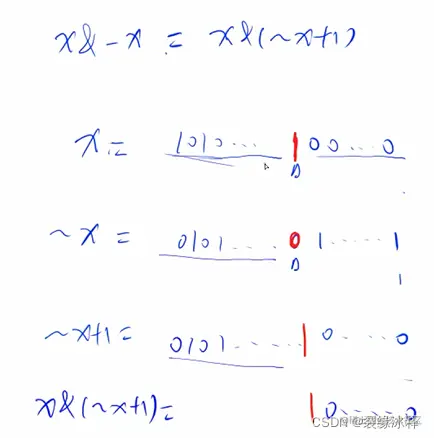 x&-x = x&(~x+1)
x= 1010... 100...0
~x = 0101....01.....1
1
~x+1= 0101......10....0
x&(~x+1)= 10.....0
CSDN @裂缘冰释